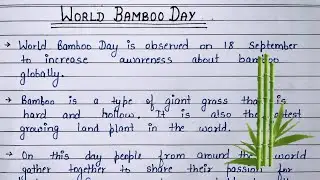 WORLD BAMBOO DAY
→ World Bamboo Day is observed on 18 September
to increase awareness about bamboo
globally.
→ Bamboo is a type of giant grass that is
hard and hollow. It is also the
growing land plant in the world.
→ On this day people from around the world
gather together to share their passion for